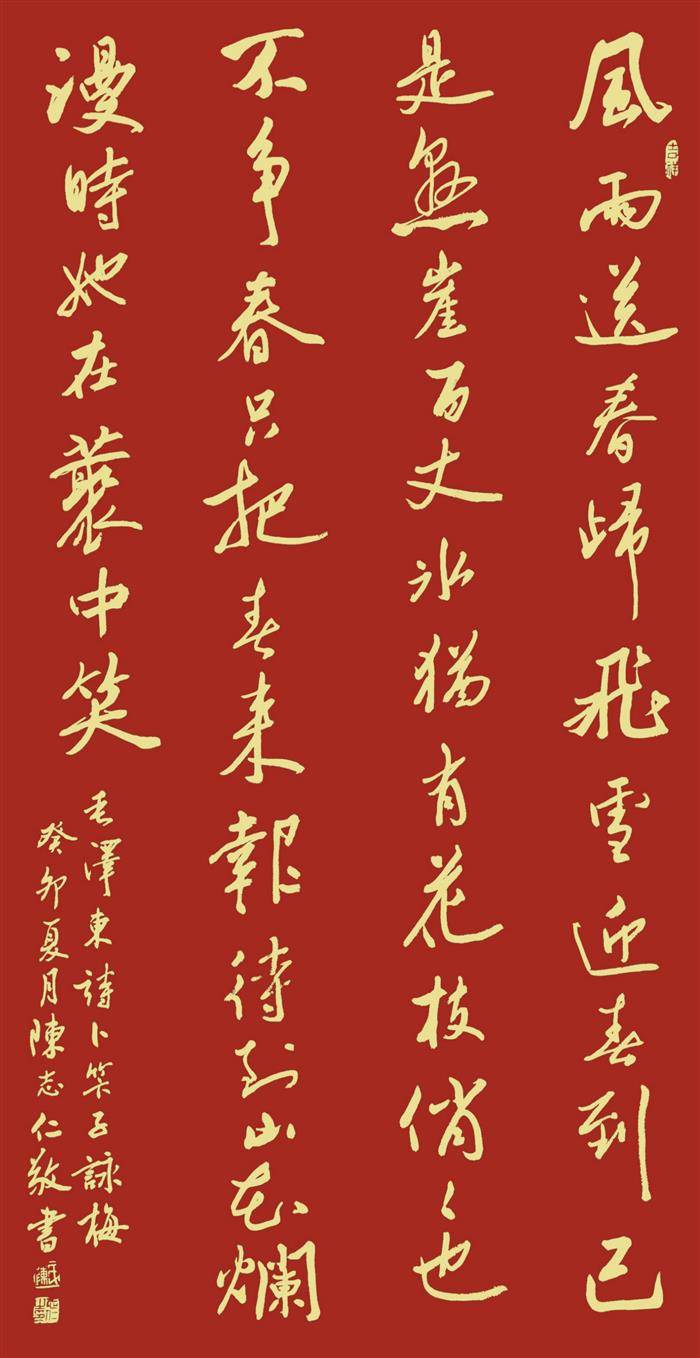 風雨送春歸飛雪迎春到已
是懸崖百丈冰猶有花枝俏々也
不争春只把春来報待到山花爛
漫時她在藂中笑
毛澤東詩卜算子詠梅
癸卯夏月陳志仁敬書